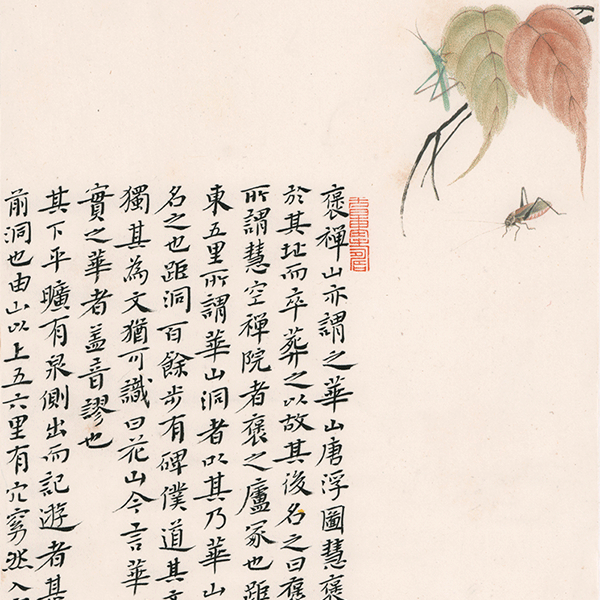 褒禪山亦謂之華山唐浮圖慧褒
於其址而卒葬之以故其後名之曰褒
所謂慧空禪院者褒之廬冢也距
東五里所謂華山洞者以其乃華山
名之也距洞百餘步有碑僕道其文
獨其為文猶可識曰花山今言華
實之華者盖音謬也
其下平曠有泉側出而記遊者甚
前洞也由山以上五六里有穴窈然入